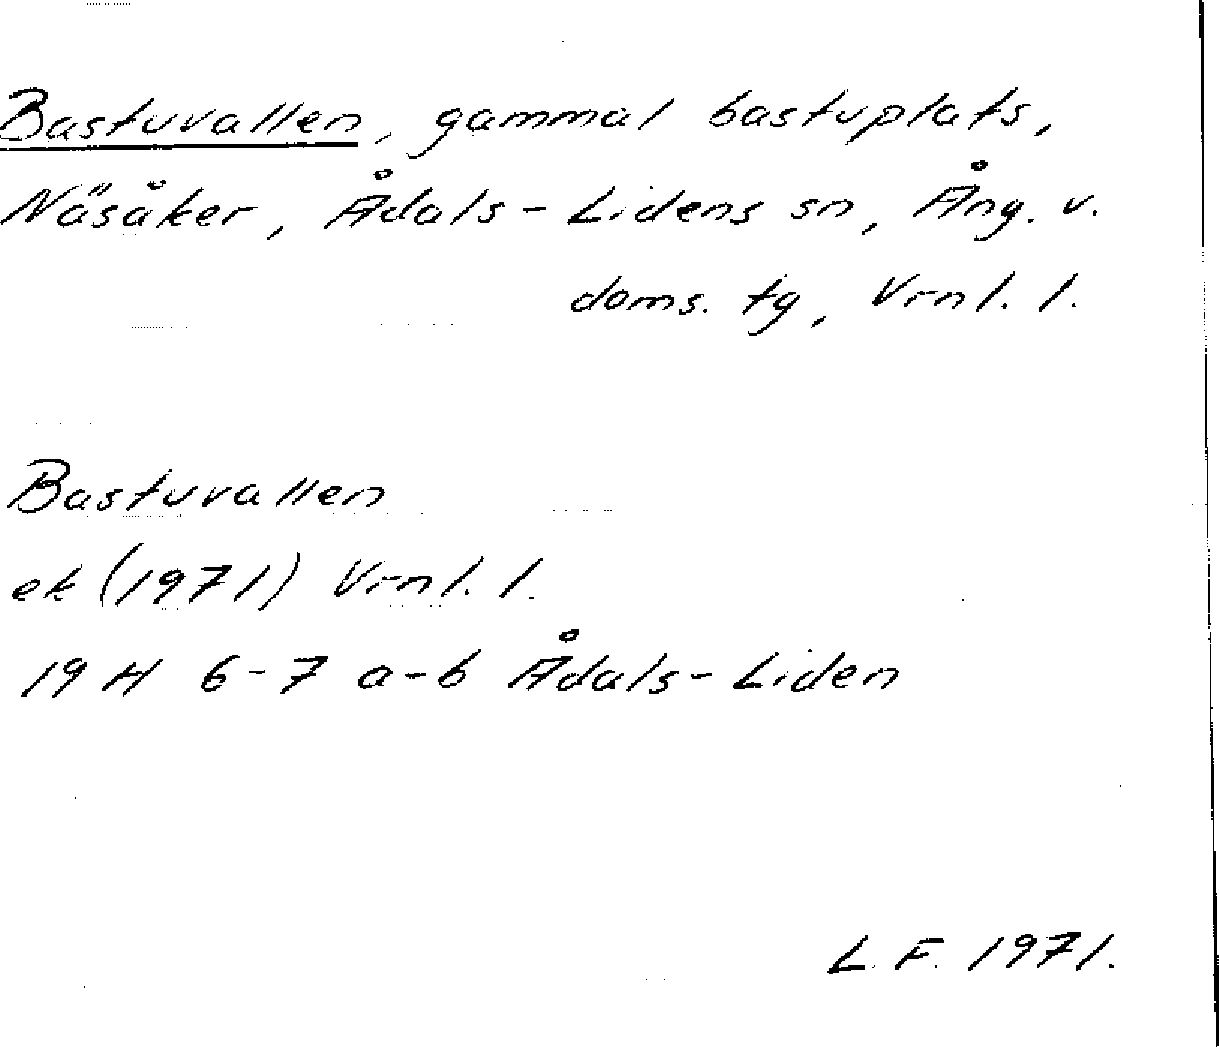 Bastuvallen, gammal bastuplats,
Näsåker, Ådals-Lidens sn, Ång. v.
doms. tg, Vrnl. l.
Bastuvallen
ek (1971) Vrnl. l.
19 H 6-7 a-b Ådals-Liden
L. F. 1971.